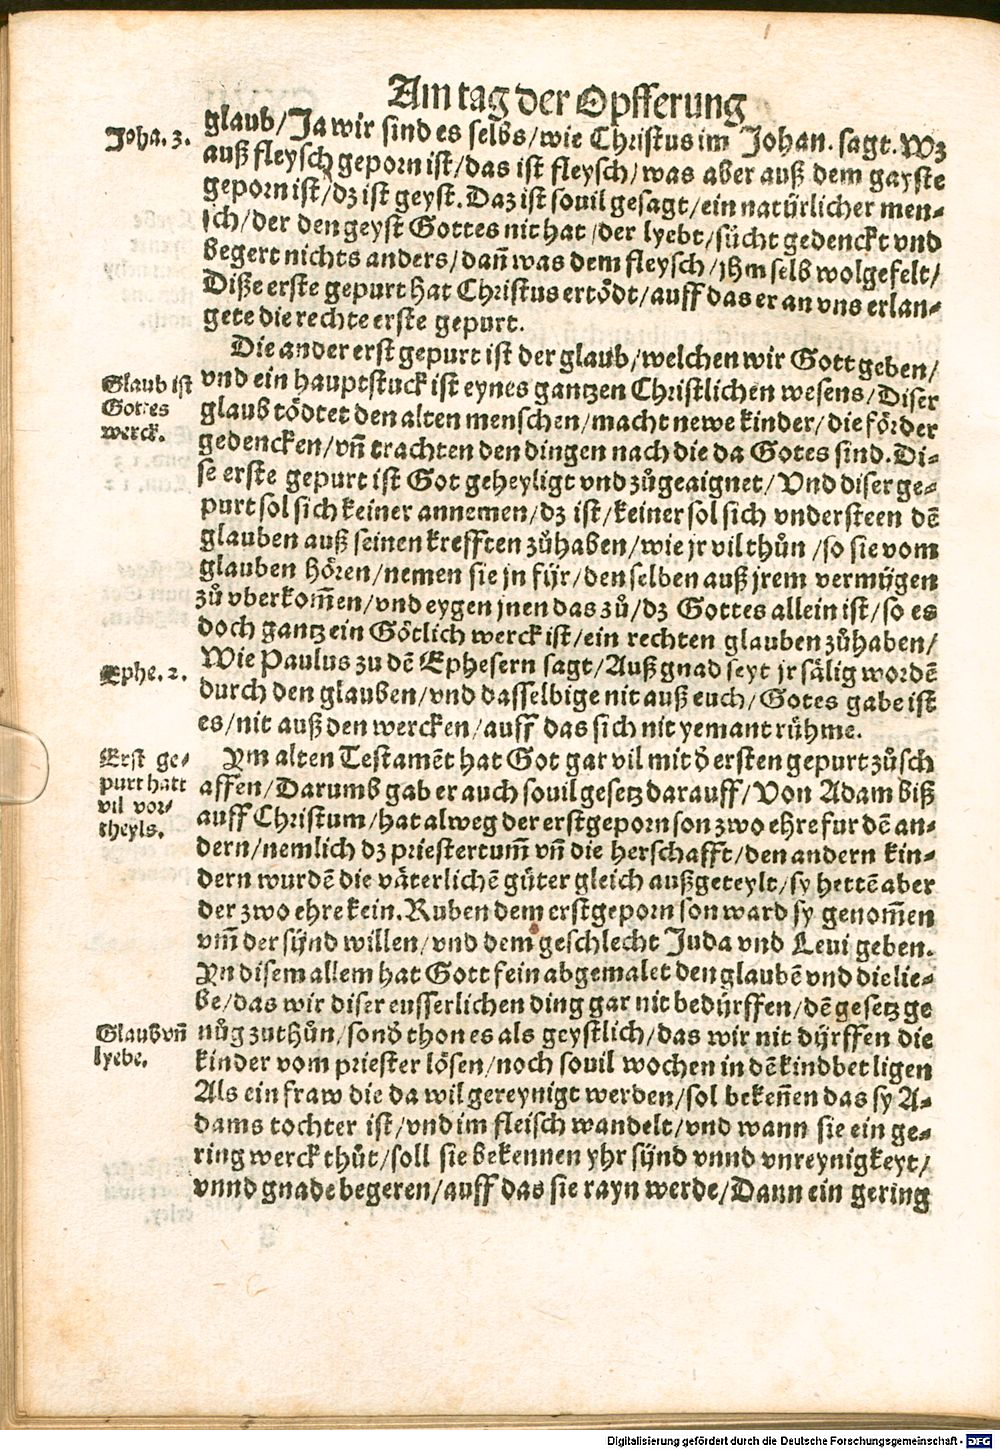 Am tag der Opfferung
Joha. 3.
glaub/Ja wir sind es selbs/wie Christus im Johan. sagt. Wz
auß fleysch geporn ist/das ist fleysch/was aber auß dem gayste
geporn ist/dz ist geyst. Daz ist souil gesagt/ein natürlicher men-
sch/der den geyst Gottes nit hat/der lyebt/sücht gedenckt vnd
begert nichts anders/dañ was dem fleysch/jhm selb wolgefelt/
Diße erste gepurt hat Christus ertödt/auff das er an vns erlan-
gete die rechte erste gepurt.
Die ander erst gepurt ist der glaub/welchen wir Gott geben/
Glaub ist
Gottes
werck.
vnd ein hauptstuck ist eynes gantzen Christlichen wesens/Diser
glaub tödtet den alten menschen/macht newe kinder/die förder
gedencken/vñ trachten den dingen nach die da Gotes sind. Di-
se erste gepurt ist Got geheyligt vnd zůgeaignet/Vnd diser ge-
purt sol sich keiner annemen/dz ist/keiner sol sich vndersteen dē
glauben auß seinen krefften zůhaben/wie jr vil thůn/so sie vom
glauben hören/nemen sie jn für/den selben auß jrem vermügen
zů vberkom̄en/vnd eygen jnen das zů/dz Gottes allein ist/so es
doch gantz ein Götlich werck ist/ein rechten glauben zůhaben/
Ephe. 2.
Wie Paulus zu dē Ephesern sagt/Auß gnad seyt jr sälig wordē
durch den glauben/vnd dasselbige nit auß euch/Gotes gabe ist
es/nit auß den wercken/auff das sich nit yemant rühme.
Erst ge-
purt hatt
vil vor-
theyls.
Ym alten Testamēt hat Got gar vil mit d̄ ersten gepurt zůsch
affen/Darumb gab er auch souil gesetz darauff/Von Adam biß
auff Christum/hat alweg der erstgeporn son zwo ehre fur dē an-
dern/nemlich dz priestertum̄ vñ die herschafft/den andern kin-
dern wurdē die väterlichē güter gleich außgeteylt/sy hettē aber
der zwo ehre kein. Ruben dem erstgeporn son ward sy genom̄en
vm̄ der sünd willen/vnd dem geschlecht Juda vnd Leui geben.
Yn disem allem hat Gott fein abgemalet den glaubē vnd die lie-
be/das wir diser eusserlichen ding gar nit bedürffen/dē gesetz ge
Glaub vñ
lyebe.
nůg zuthůn/sond̄ thon es als geystlich/das wir nit dürffen die
kinder vom priester lösen/noch souil wochen in dē kindbet ligen
Als ein fraw die da wil gereynigt werden/sol bekeñen das sy A-
dams tochter ist/vnd im fleisch wandelt/vnd wann sie ein ge-
ring werck thůt/soll sie bekennen yhr sünd vnnd vnreynigkeyt/
vnnd gnade begeren/auff das sie rayn werde/Dann ein gering
Digitalisierung gefördert durch die Deutsche Forschungsgemeinschaft - DFG